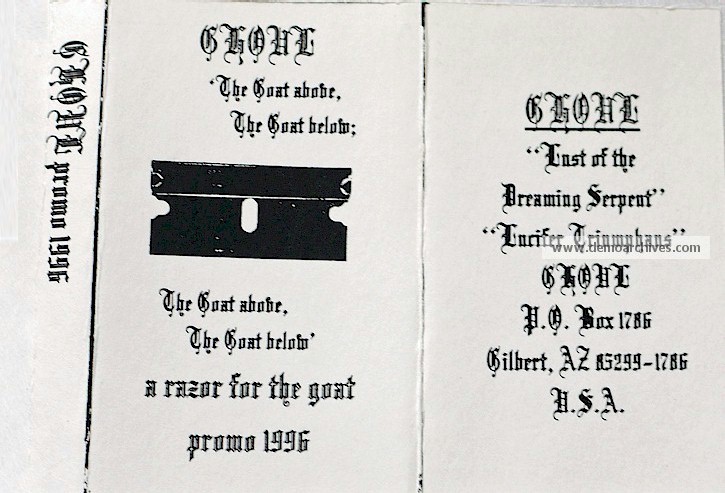 GHOUL promo 1996
GHOUL
'The Goat above,
The Goat below;
The Goat above,
The Goat below'
a razor for the goat
promo 1996
GHOUL
"Lust of the
Dreaming Serpent"
"Lucifer Triumphans"
www.demoarchives.com
GHOUL
P.O. Box 1786
Gilbert, AZ 85299-1786
U.S.A.